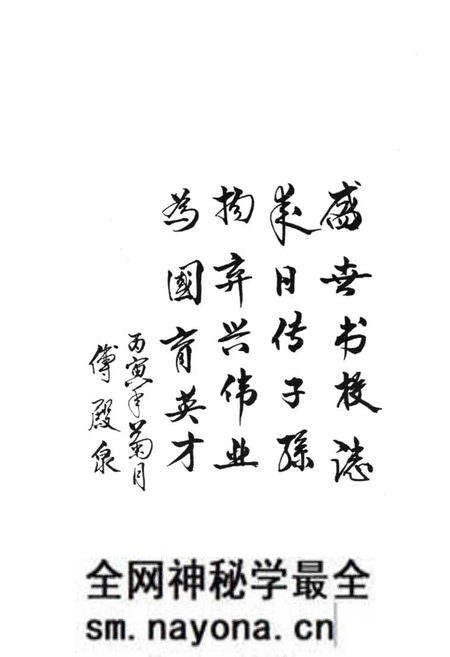 盛世书校誌
来日传子孫
拘弃兴伟业
為國育英才
丙寅年菊月
傅殿泉
全网神秘学最全
sm.nayona.cn